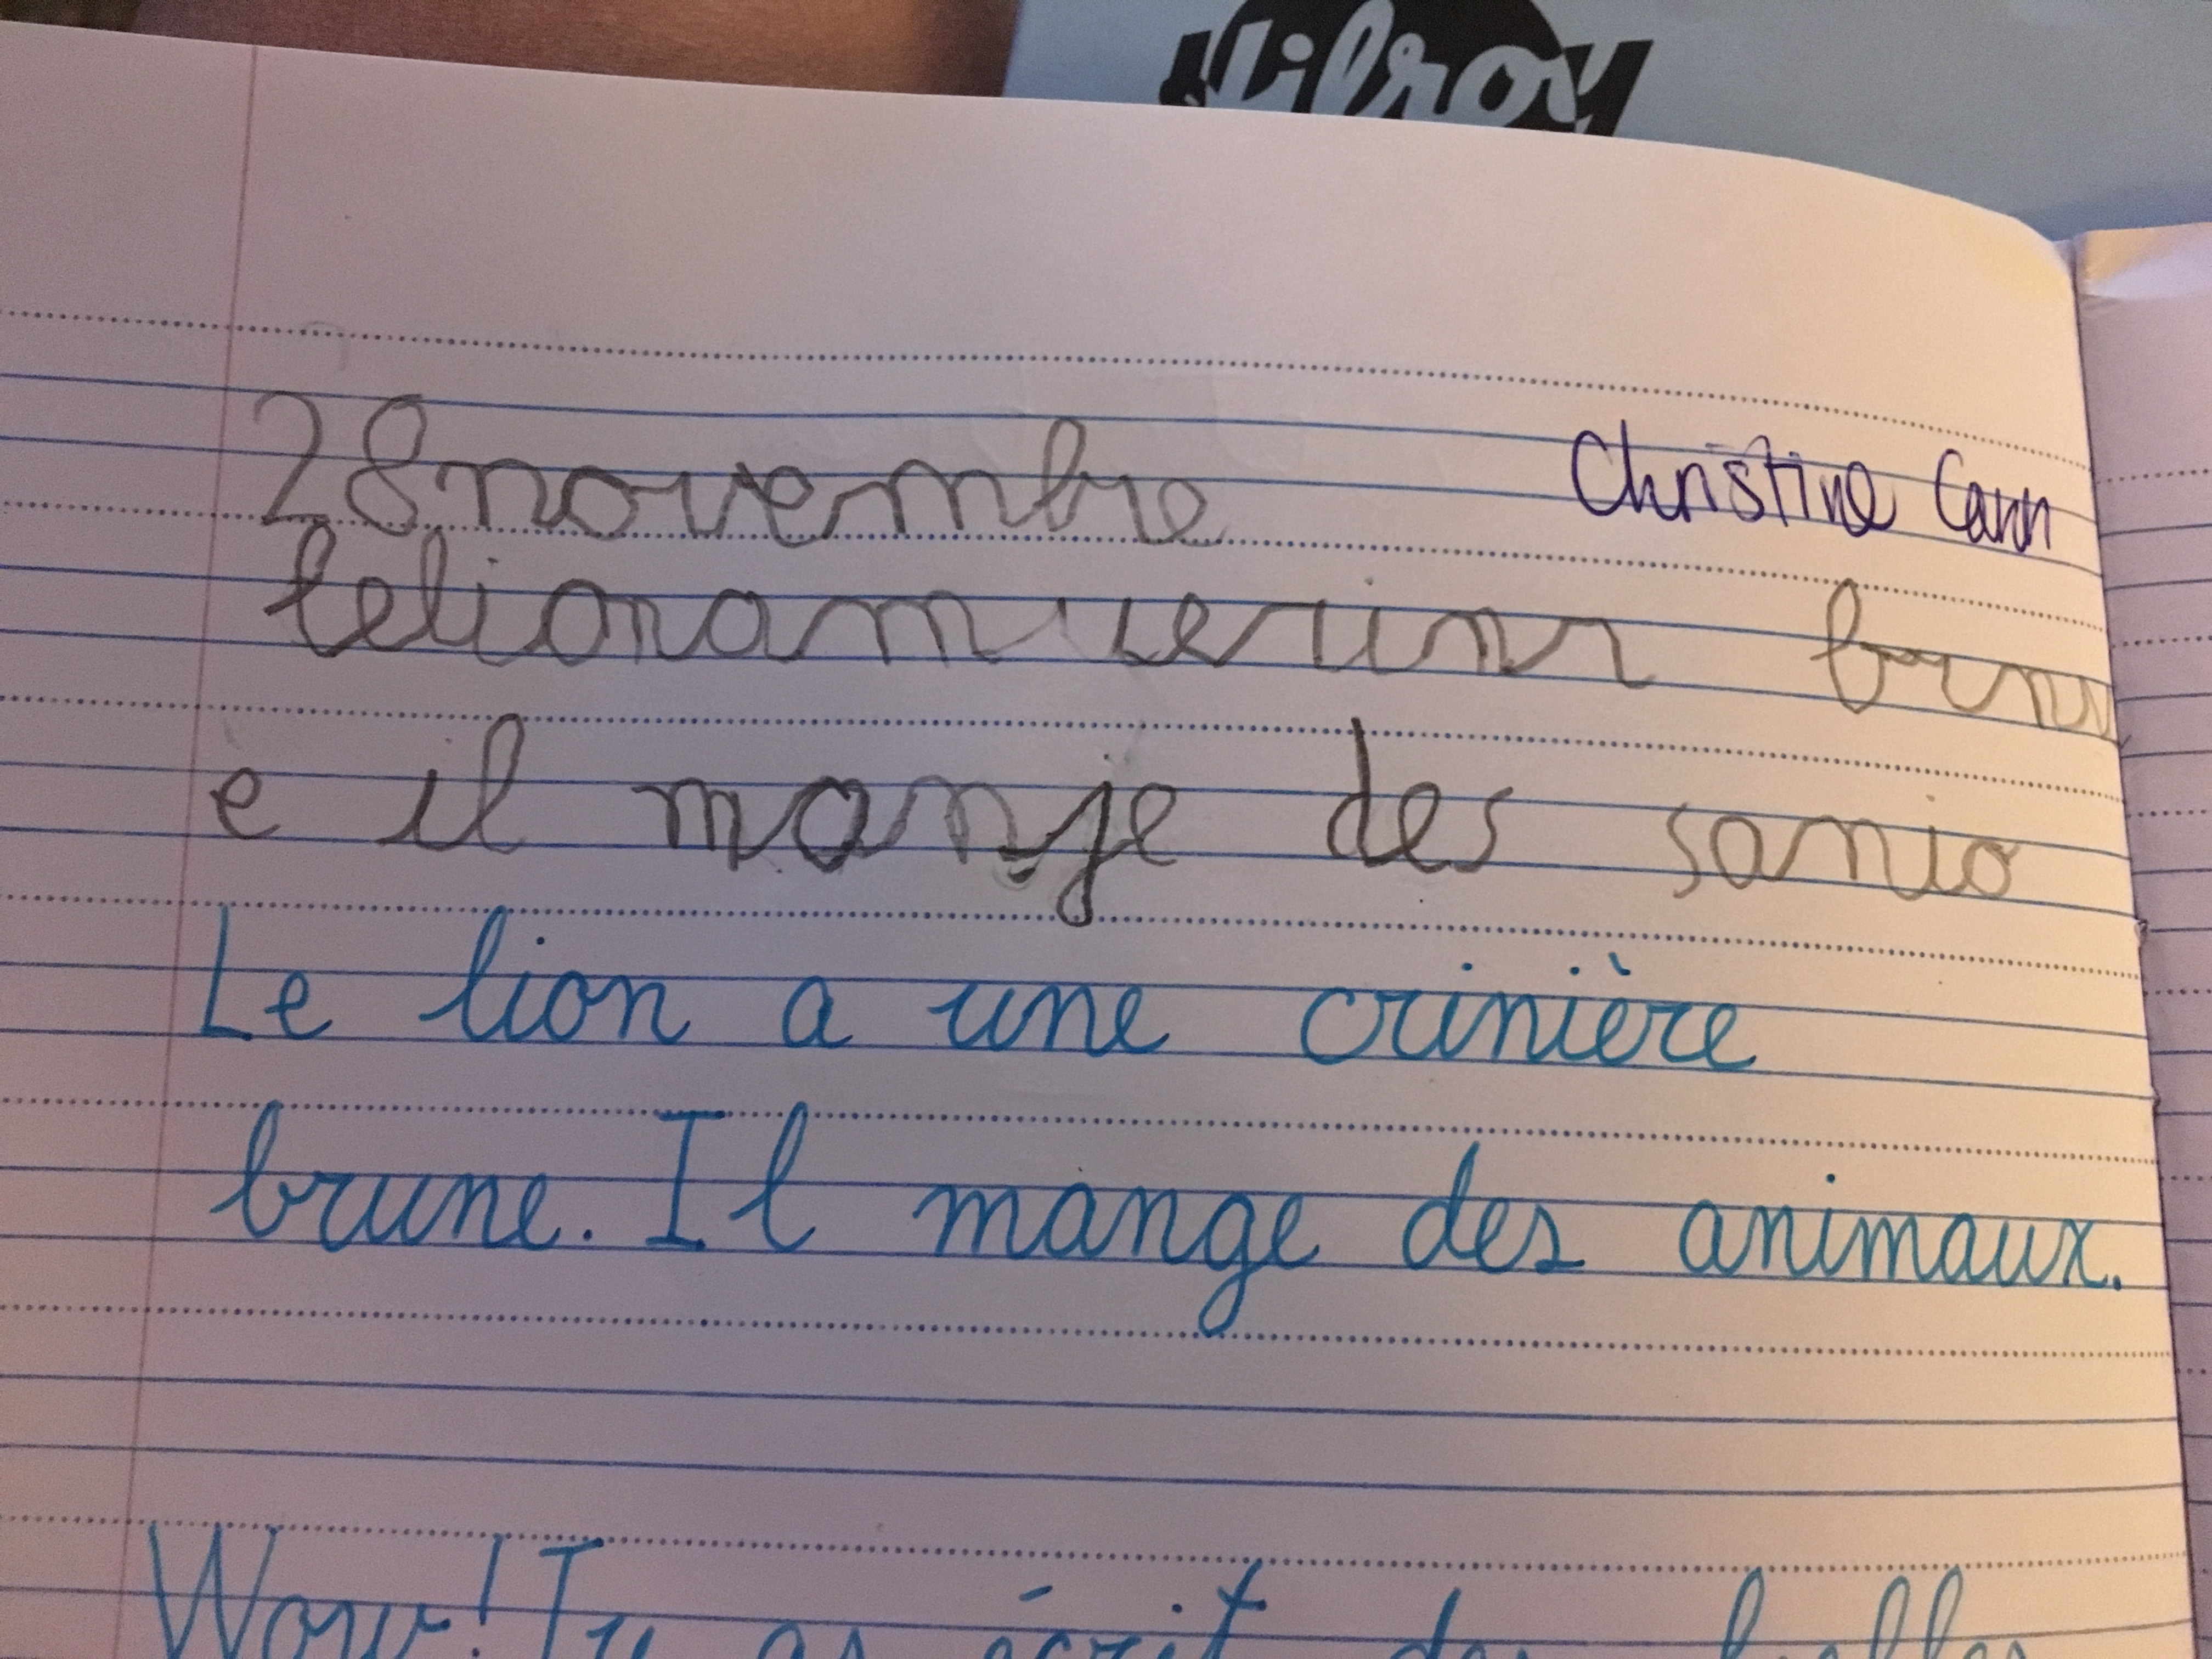 Kilroy
28 novembre Christine Cann
brun
e il manje des sanio
Le lion a une crinière
brune. Il mange des animaux.
Wow! Tu as écrit des belles